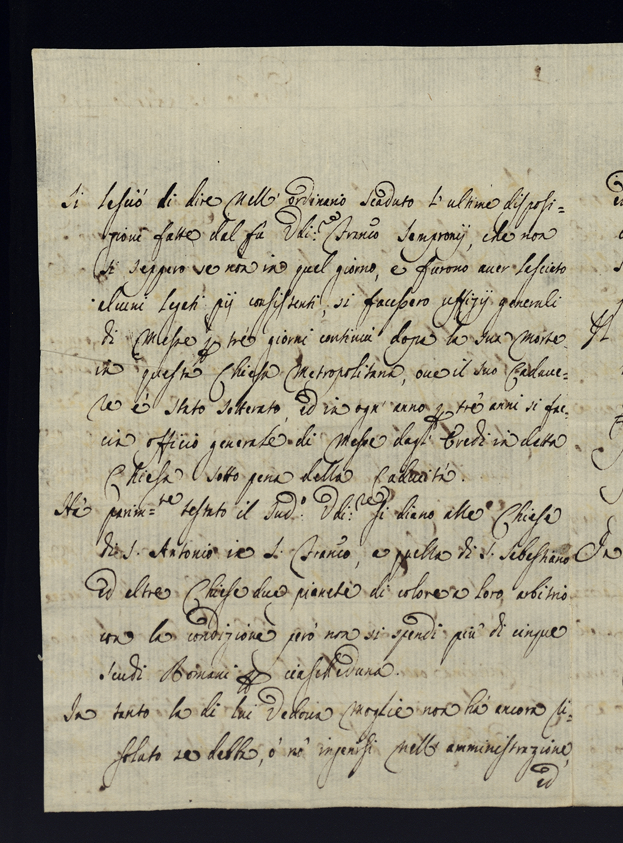 Si lasciò di dire nell' ordinario scaduto l' ultime disposi=
zioni fatte dal fù Franco Sempronij, che non
si seppero se non in quel giorno, e furono aver lasciato
alcuni legati pij consistenti, si facessero uffizij generali
di Messe p tre giorni continui dopo la sua morte
in questa Chiesa Metropolitana, ove il suo Cadave=
re è stato sotterrato, ed in ogn' anno p trè anni si fac=
cia officio generale di Messe dagl' Eredi in detta
Chiesa sotto pena della Caducità.
Hà parim.te testato il Sud.o si diano alle Chiese
di S. Antonio in S. Franco, a quella di S. Sebastiano
ed altre Chiese due pianete di colore a loro arbitrio
con la condizione però non si spendi più di cinque
scudi Romani p ciascheduna.
In tanto la di lui Vedova Moglie non hà ancora ri=
soluto se debba, ò nò ingerirsi nell' amministrazione,
ed